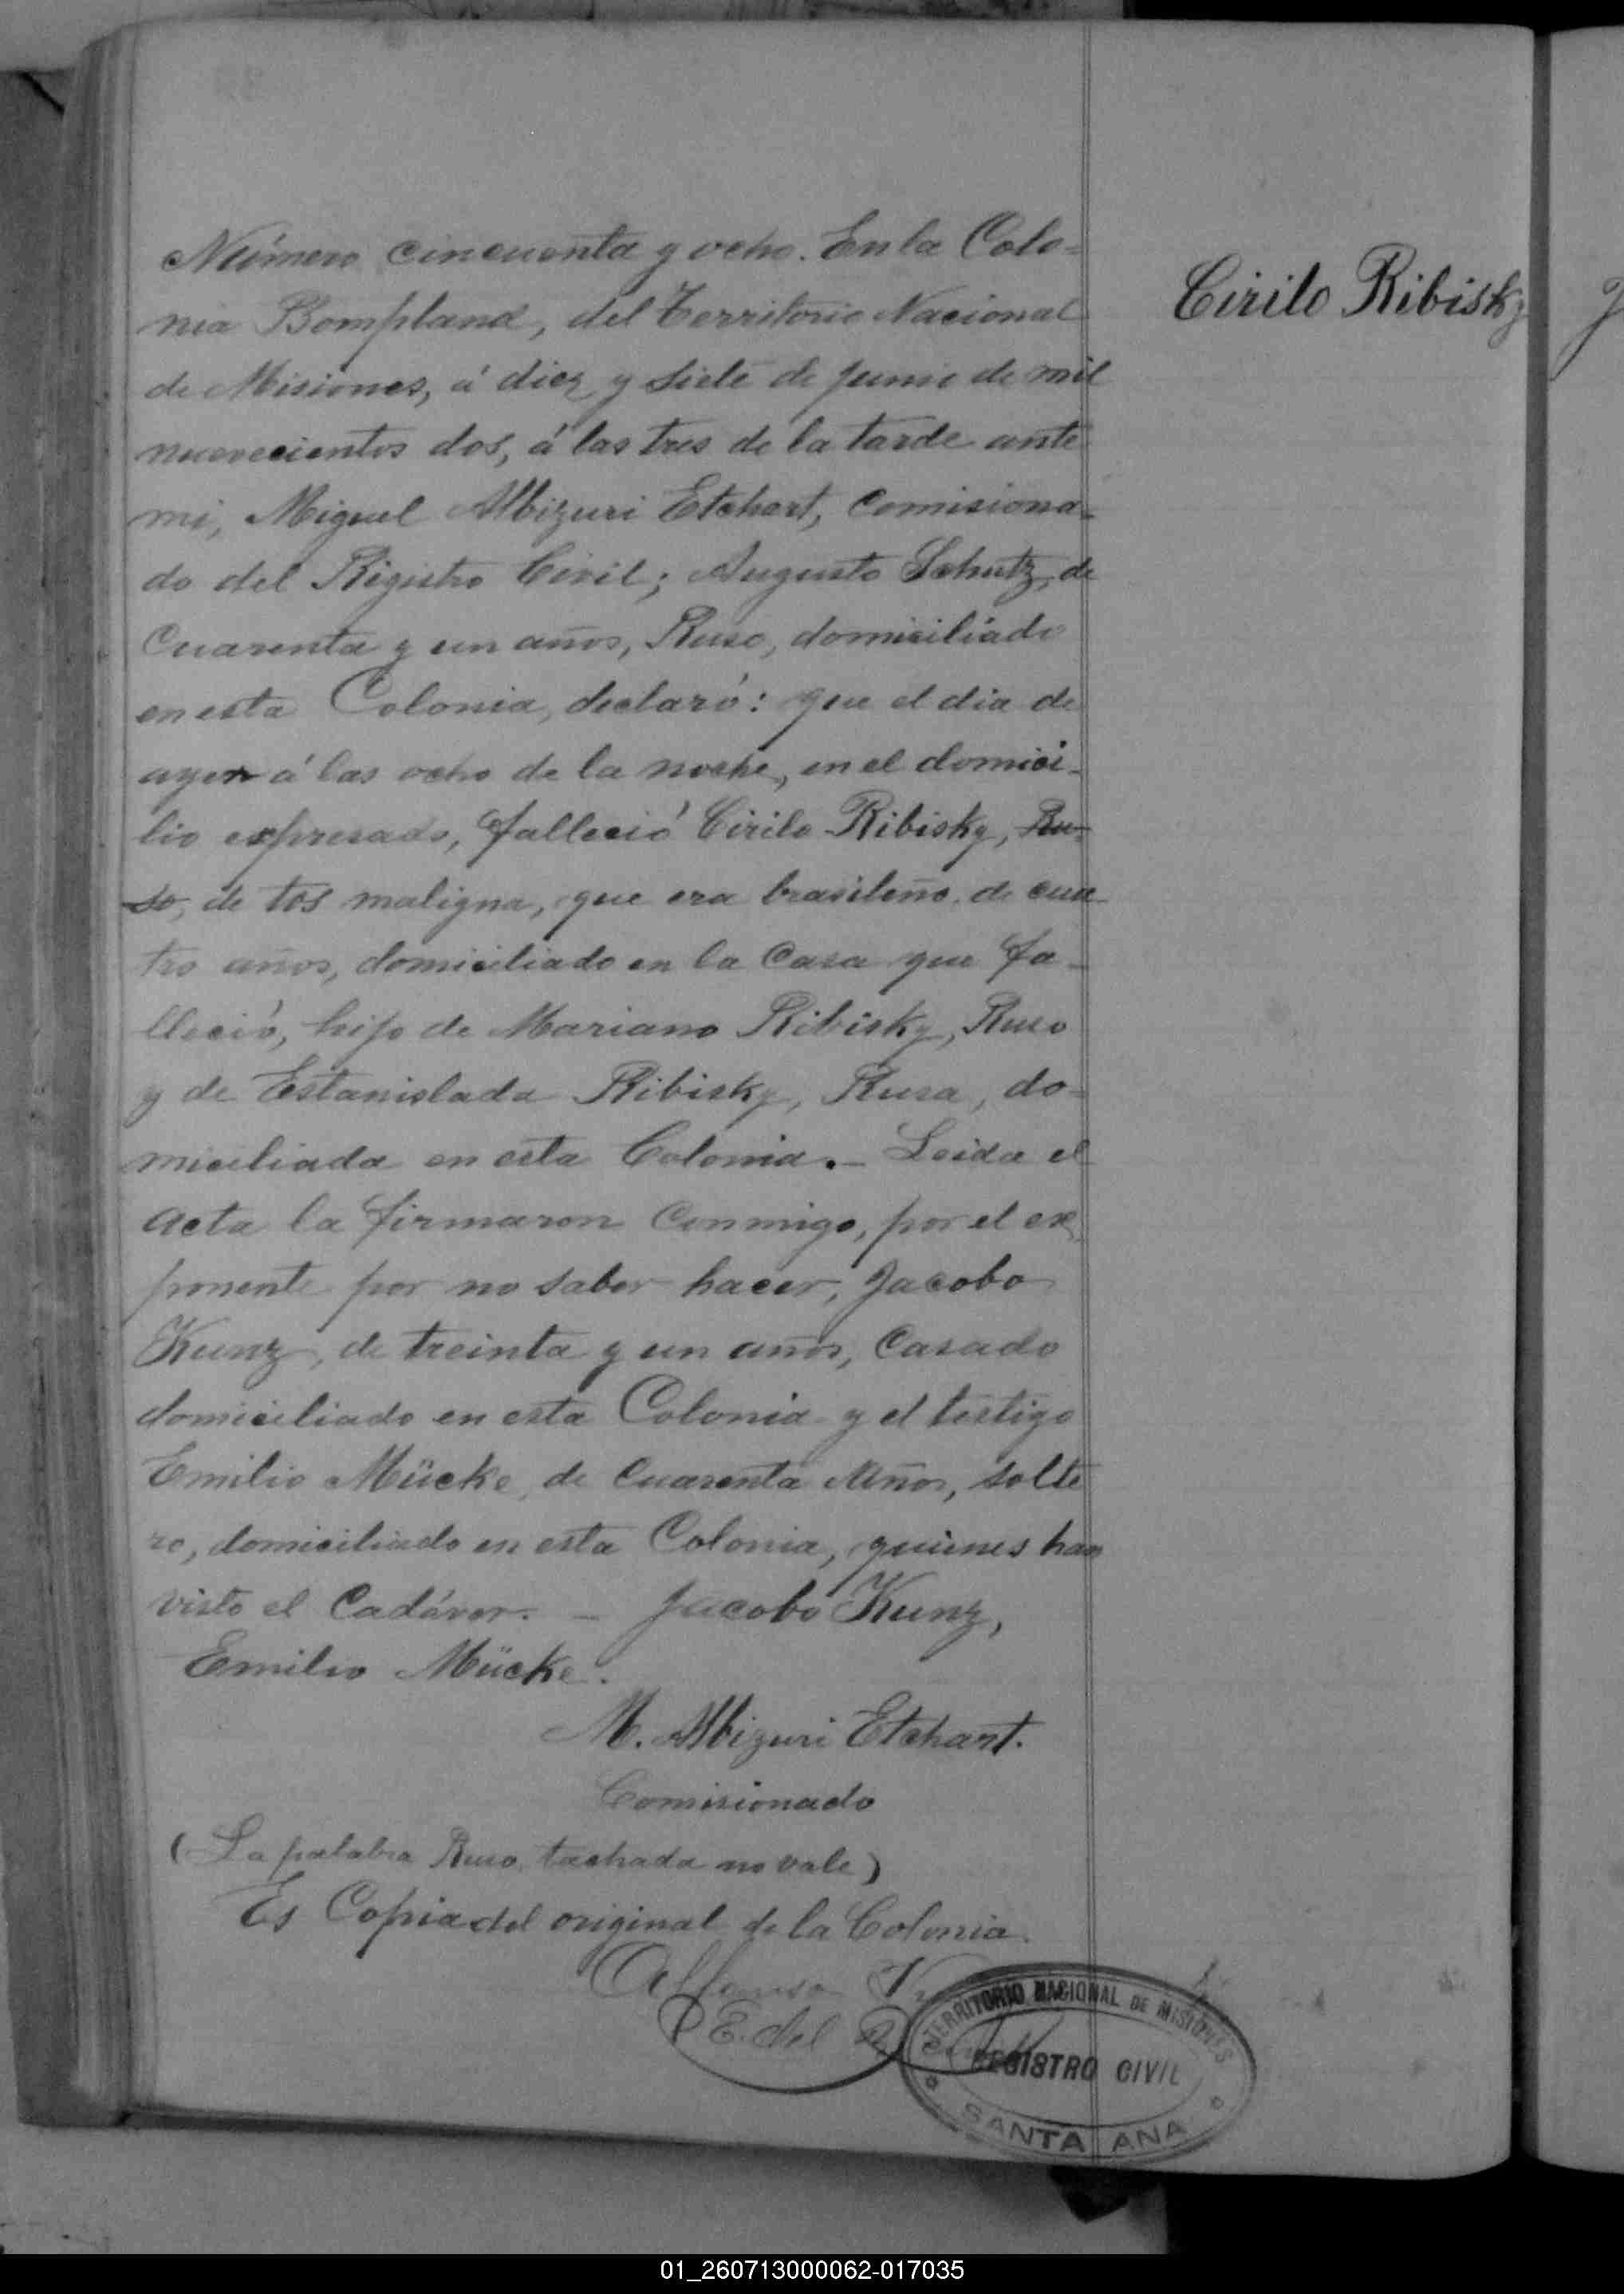 Número cincuenta y ocho. En la Colo=
nia Bompland, del Territorio Nacional
de Misiones, á diez y siete de junio de mil
novecientos dos, á las tres de la tarde ante
mi, Miguel Albizuri Etchart, Comisiona-
do del Registro Civil; Augusto Schutz, de
Cuarenta y un años, Ruso, domiciliado
en esta Colonia, declaró: que el dia de
ayer á las ocho de la noche, en el domici-
lio expresado, falleció Cirilo Ribisky, Ru-
so, de tos maligna, que era brasileño, de cua
tro años, domiciliado en la Casa que fa-
lleció, hijo de Mariano Ribisky, Ruso
y de Estanislada Ribisky, Rusa, do=
miciliada en esta Colonia.- Leida el
acta la firmaron Conmigo, por el ex
ponente por no saber hacer, Jacobo
Kunz, de treinta y un años, Casado
domiciliado en esta Colonia y el testigo
Emilio Mücke, de Cuarenta Años, solte
ro, domiciliado en esta Colonia, quienes han
visto el Cadáver. - Jacobo Kunz,
Emilio Mücke.
M. Albizuri Etchart.
Comisionado
(La palabra Ruso, tachada no vale)
Es Copia del original de la Colonia.
Alfonso
E. del
Cirilo Ribisky
TERRITORIO NACIONAL DE MISIONES
REGISTRO CIVIL
SANTA ANA
01_260713000062-017035